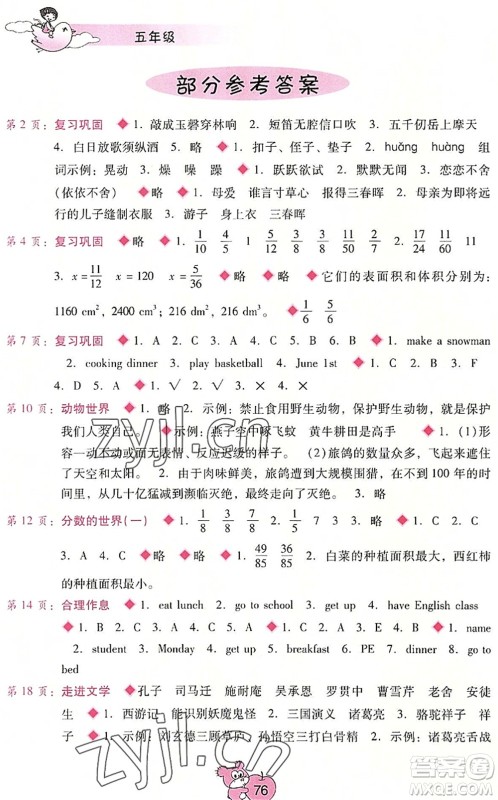 五年级
部分参考答案
第 2 页：复习巩固 ◆ 1. 敲成玉磬穿林响 2. 短笛无腔信口吹 3. 五千仞岳上摩天
4. 白日放歌须纵酒 5. 略 ◆ 1. 扣子、侄子、垫子 2. huǎng huàng 组
词示例：晃动 3. 燥 噪 躁 ◆ 1. 跃跃欲试 2. 默默无闻 3. 恋恋不舍
(依依不舍) ◆ 1. 母爱 谁言寸草心 报得三春晖 2. 母亲为即将远
行的儿子缝制衣服 3. 游子 身上衣 三春晖
第 4 页：复习巩固 ◆ 略 ◆ 1. 1/10 4/5 1 5/12 3/8 3/2 2. 17/24 11/60 11
3. x = 11/12 x = 120 x = 5/36 ◆ 略 ◆ 它们的表面积和体积分别为：
1160 cm², 2400 cm³; 216 dm², 216 dm³. ◆ 1/6 5/6
第 7 页：复习巩固 ◆ 1. A 2. C 3. A 4. C 5. B ◆ 1. make a snowman
2. cooking dinner 3. play basketball 4. June 1st ◆ 1. C 2. B 3. F
4. D 5. A ◆ 1. √ 2. √ 3. × 4. ×
第 10 页：动物世界 ◆ 1. 略 2. 示例：禁止食用野生动物，保护野生动物，就是保护
我们人类自己。 ◆ 示例：燕子空中啄飞蚊 黄牛耕田是高手 ◆ 1. (1) 形
容一动不动或面无表情、反应迟钝的样子。 (2) 旅鸽的数量众多，飞起来遮住
了天空和太阳。 2. 由于肉味鲜美，旅鸽遭到大规模围猎，在不到 100 年的时
间里，从几十亿猛减到濒临灭绝，直到最后走向了灭绝。 3. 略
第 12 页：分数的世界(一) ◆ 1. 1/8 3/8 7/8 3/2 2. 略 ◆ 略 ◆ 1. C 2. B
3. A 4. C ◆ 略 ◆ 略 ◆ 1. 49/85 36/85 2. 白菜的种植面积最大，西红柿
的种植面积最小。
第 14 页：合理作息 ◆ 1. eat lunch 2. go to school 3. get up 4. have English class
◆ 1. B 2. C 3. A 4. A 5. C ◆ 1. C 2. E 3. A 4. B 5. D ◆ 1. name
2. student 3. Monday 4. get up 5. breakfast 6. PE 7. dinner 8. go to
bed
第 18 页：走进文学 ◆ 孔子 司马迁 施耐庵 吴承恩 罗贯中 曹雪芹 老舍 安徒
生 ◆ 1. 西游记 能识别妖魔鬼怪 2. 三国演义 诸葛亮 3. 骆驼祥子 祥
子 ◆ 1 示例：刘玄德三顾草庐 孙悟空三打白骨精 2. 示例：诸葛亮舌战
76
zyjl.cn
zyjl.cn
答案圈
MXQE.COM